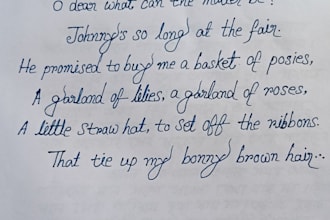 O dear what can the matter be?
Johnny's so long at the fair.
He promised to buy me a basket of posies,
A garland of lilies, a garland of roses,
A little straw hat, to set off the ribbons.
That tie up my bonny brown hair...